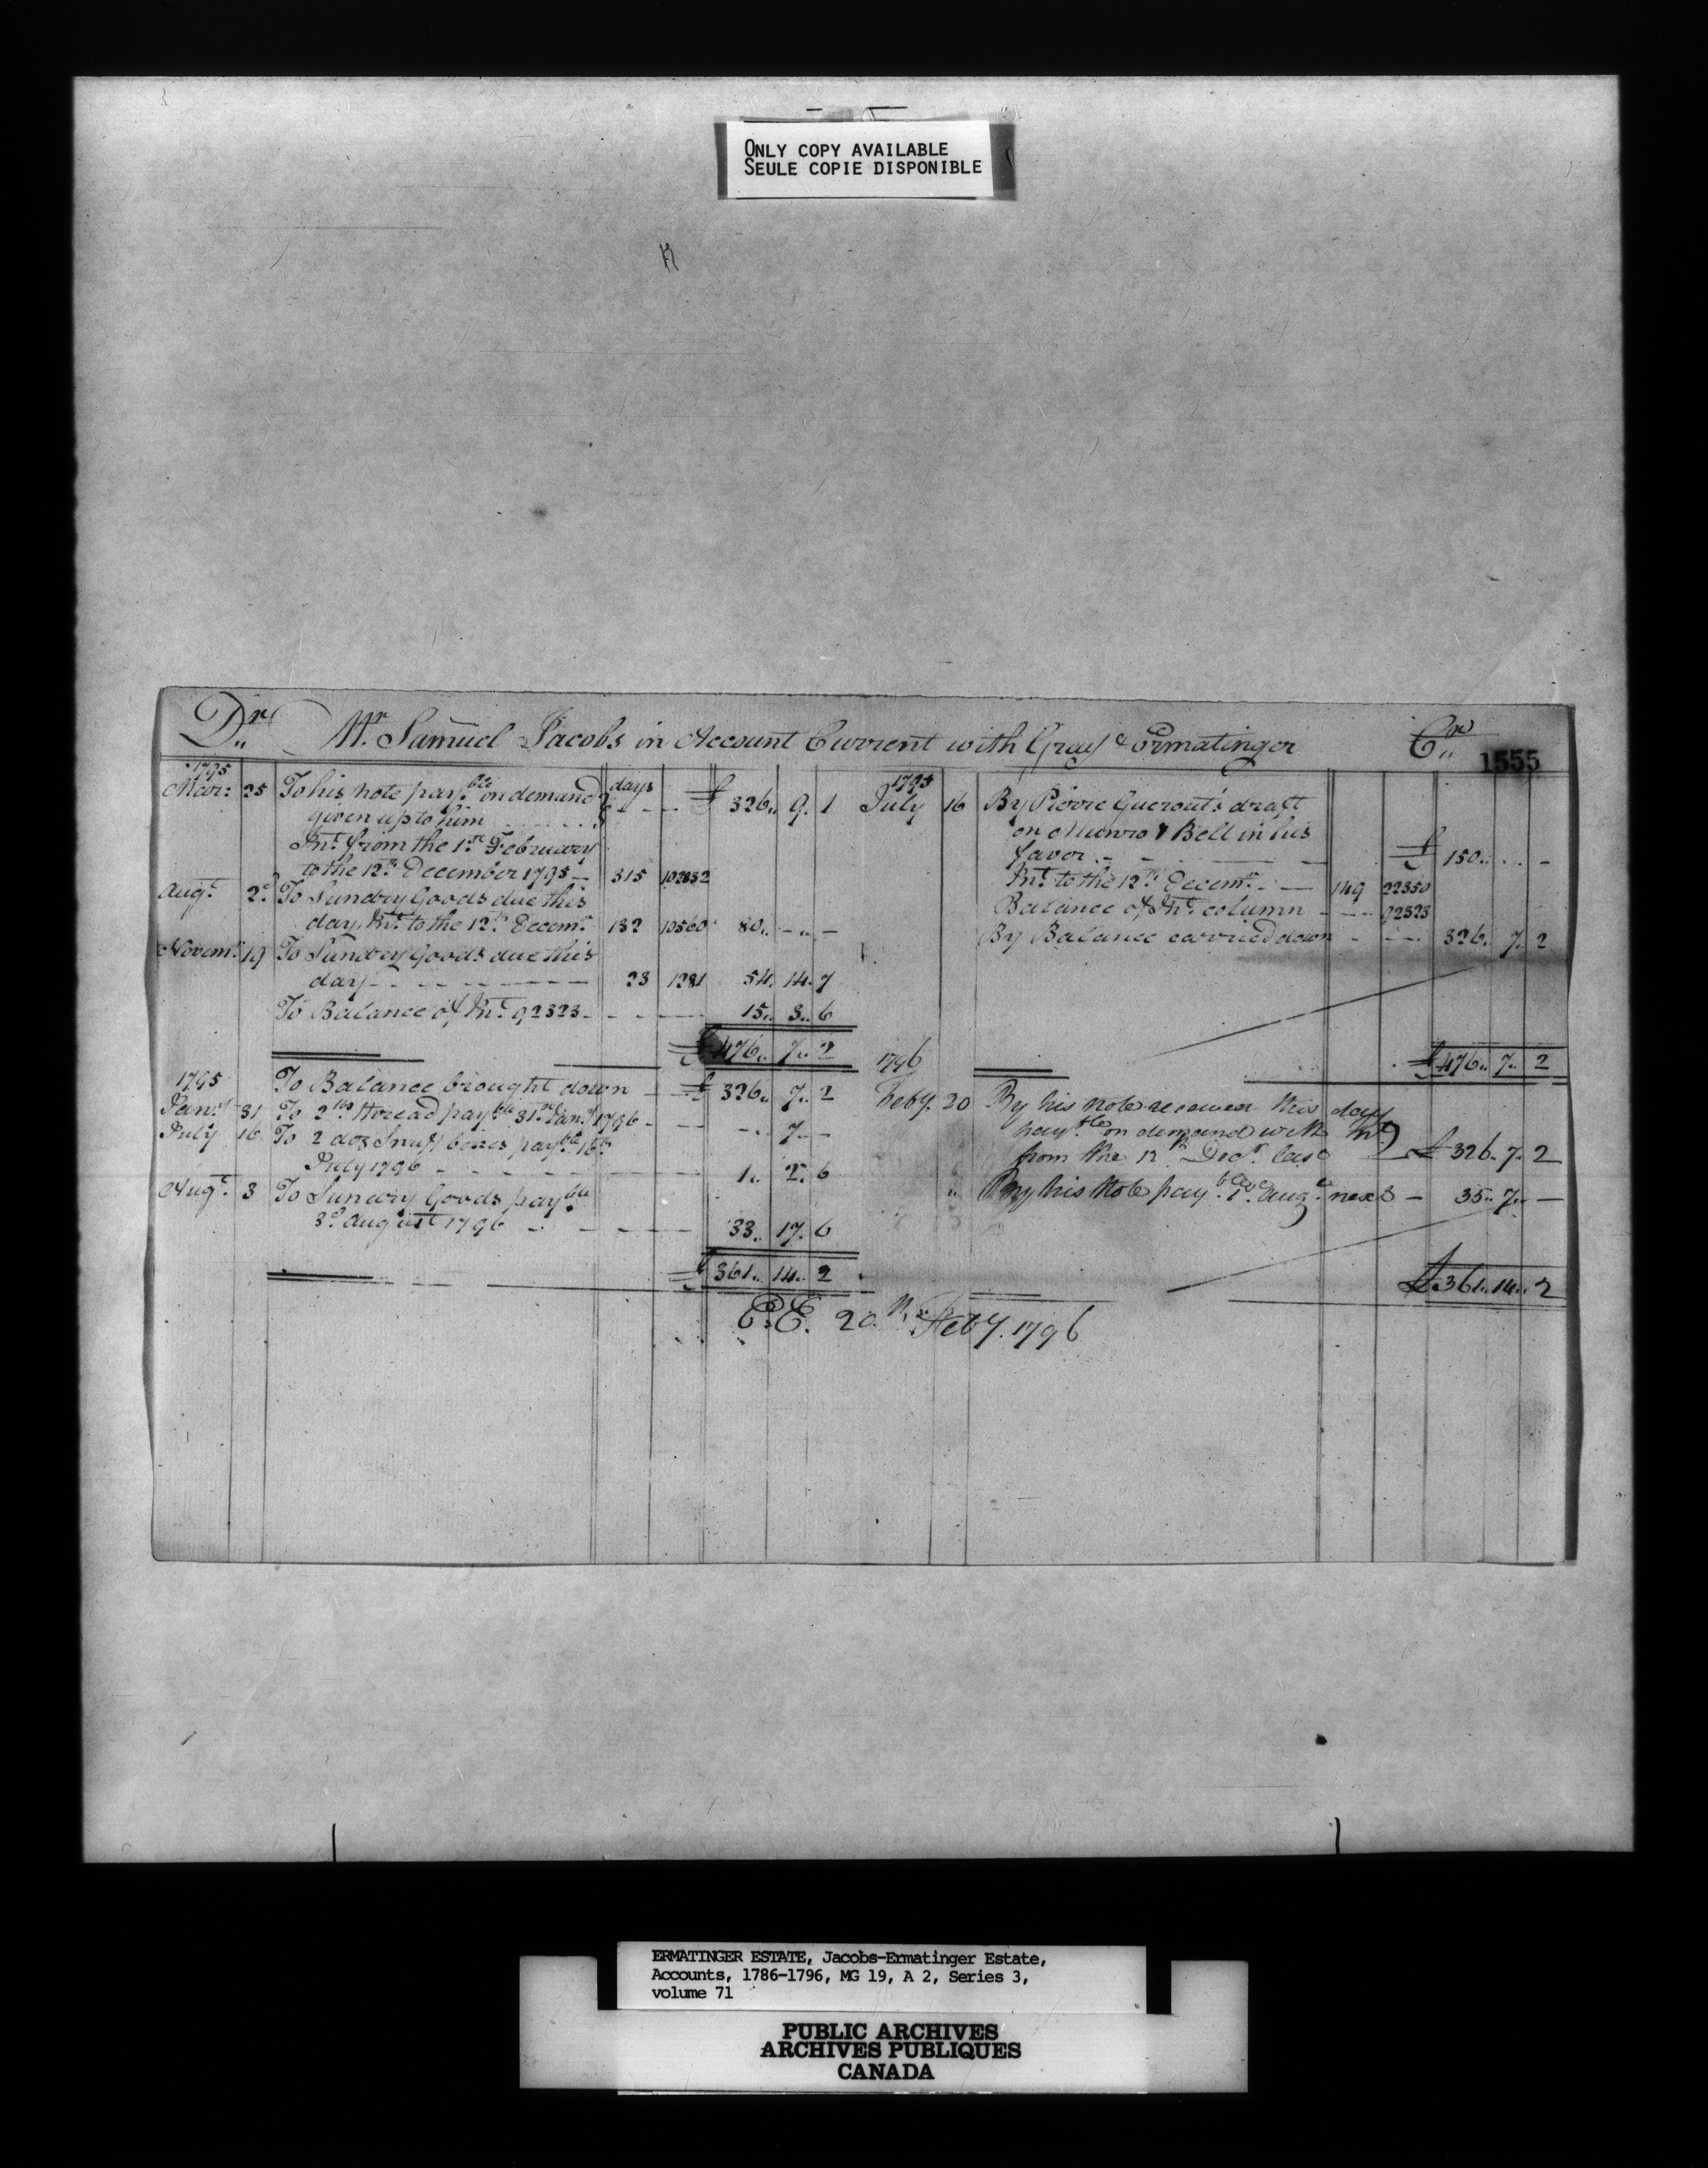 ONLY COPY AVAILABLE
SEULE COPIE DISPONIBLE
Dr Mr. Samuel Jacobs in Account Current with Gray & Ermatinger Cr
1555
1795
Mar: 25 To his note payble on demand days
given up to him £ 326.. 9. 1
Int. from the 1st February
to the 12th December 1795 315 102832
Augt. 2d To Sundry Goods due this
day. Int. to the 12th Decemr. 132 10560 80.. - .. -
Novemr. 19 To Sundry Goods due this
day 23 1281 54. 14. 7
To Balance of Int. 92323 15.. 3.. 6
£ 476.. 7.. 2
1795 To Balance brought down £ 326.. 7.. 2
Jany. 31 To 2 lb thread payble 31st Jany. 1796 - .. 7.. -
July 16 To 2 doz Snuff boxes payble 16th
July 1796 1.. 2.. 6
Augt. 3 To Sundry Goods payble
3d august 1796 33.. 17. 6
£ 361.. 14.. 2
1795
July 16 By Pierre Guerout's draft
on Munro & Bell in his
favor £ 150.. - .. -
Int. to the 12th Decemr. 149 22350
Balance of Int. column 92323
By Balance carried down 326. 7. 2
£ 476.. 7.. 2
1796
Feby. 20 By his note renewed this day
payble on demand with Int.
from the 12th Decr. last £ 326. 7. 2
" By his Note payble augt. next 35.. 7.. -
£ 361.. 14.. 2
E.E. 20th Feby. 1796
ERMATINGER ESTATE, Jacobs-Ermatinger Estate,
Accounts, 1786-1796, MG 19, A 2, Series 3,
volume 71
PUBLIC ARCHIVES
ARCHIVES PUBLIQUES
CANADA